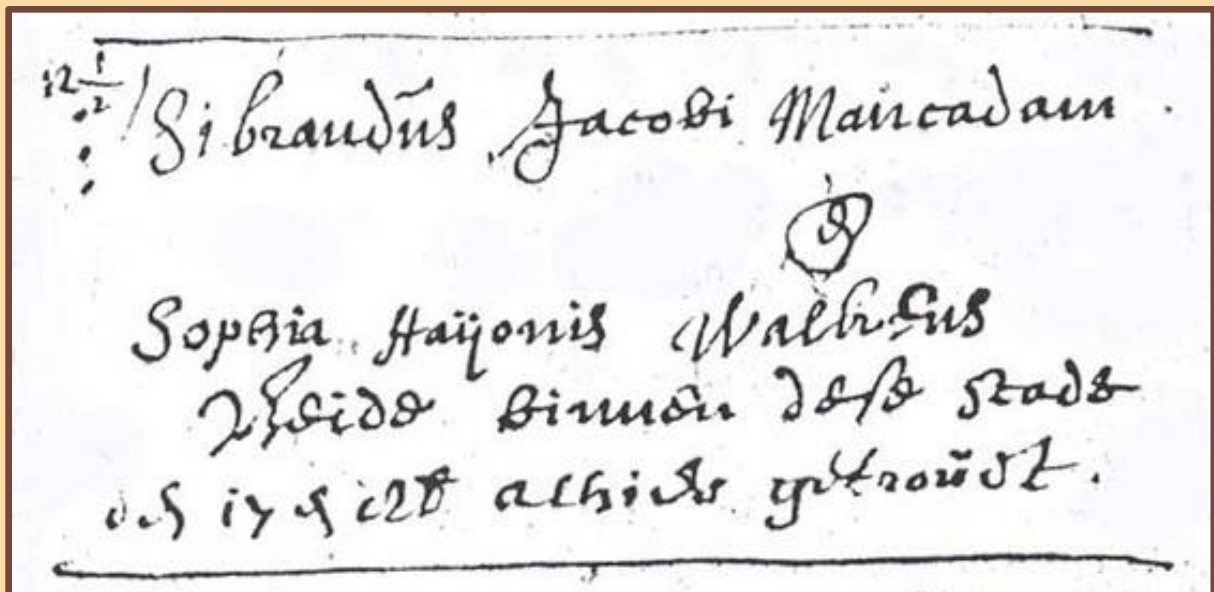 12 1/2
Sibrandus Jacobi Mancadam
&
Sophia Haijonis Walbricus
Beide binnen dese stade
den 17 alhier getrouwt.